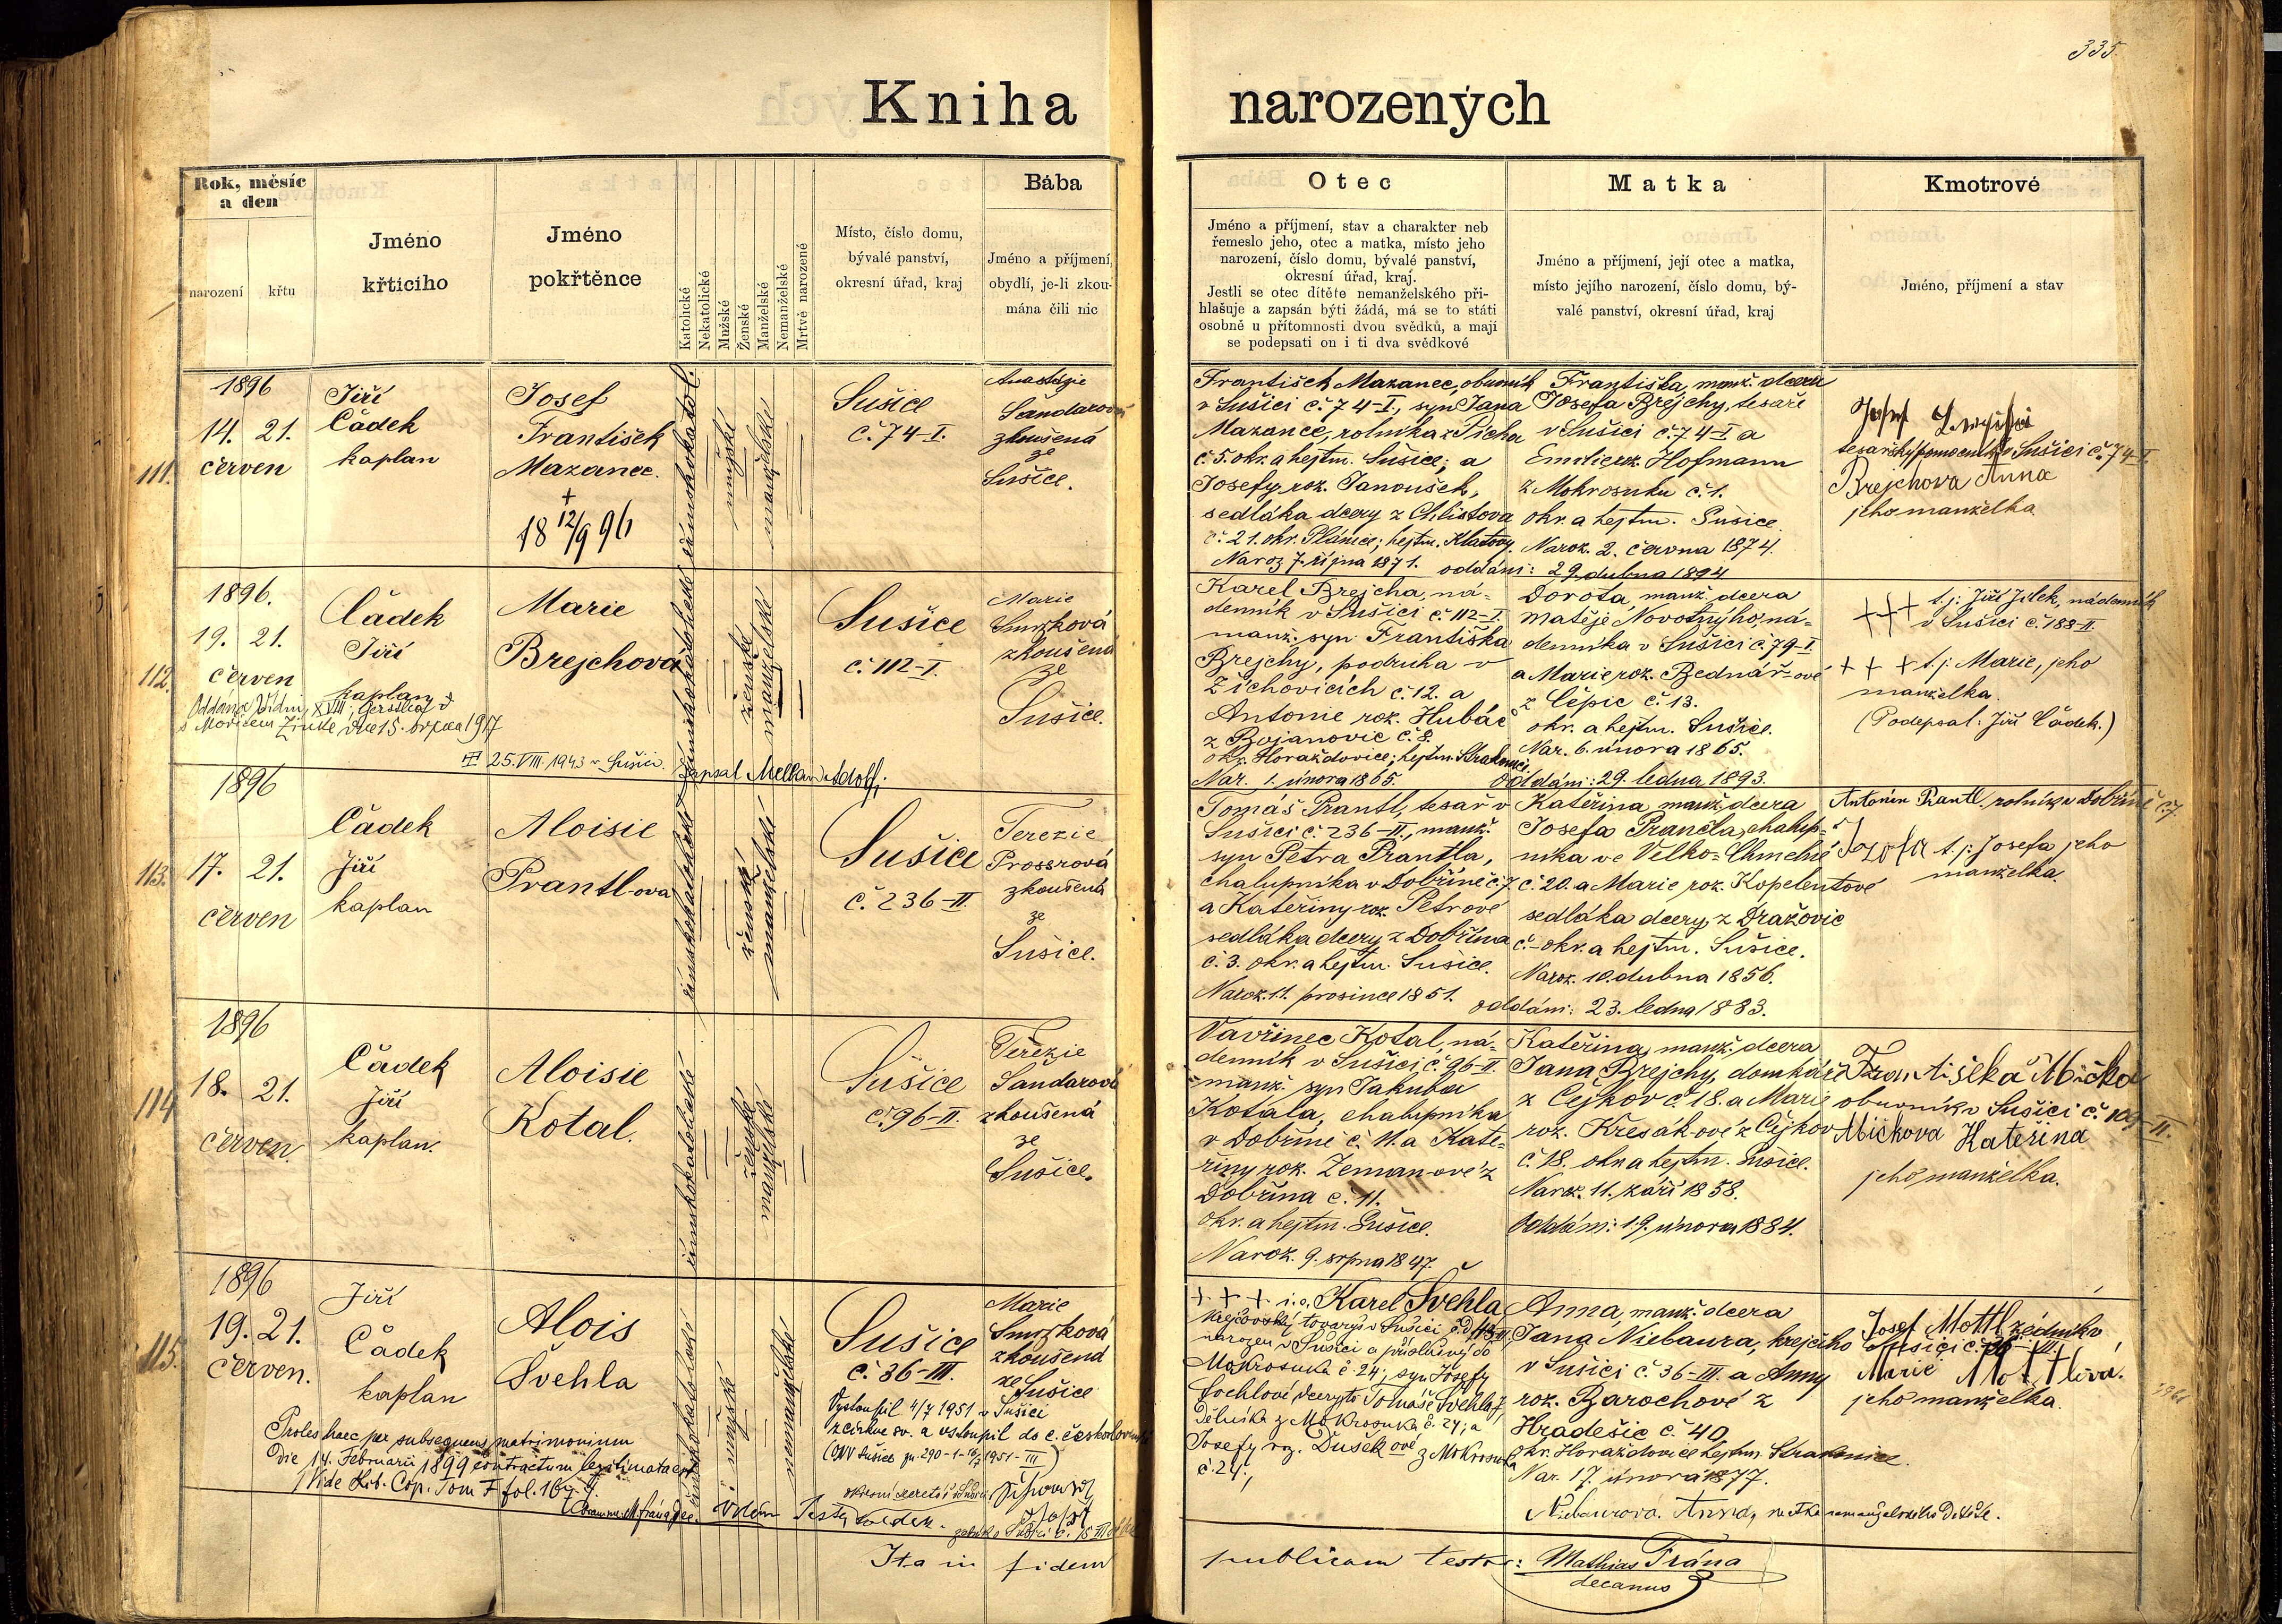 335.
Kniha narozených
Rok, měsíc
a den
narození
křtu
Jméno
křticího
Jméno
pokřtěnce
Katolické
Nekatolické
Mužské
Ženské
Manželské
Nemanželské
Mrtvě narozené
Místo, číslo domu,
bývalé panství,
okresní úřad, kraj
Bába
Jméno a příjmení,
obydlí, je-li zkou-
mána čili nic
Otec
Jméno a příjmení, stav a charakter neb
řemeslo jeho, otec a matka, místo jeho
narození, číslo domu, bývalé panství,
okresní úřad, kraj.
Jestli se otec dítěte nemanželského při-
hlašuje a zapsán býti žádá, má se to státi
osobně u přítomnosti dvou svědků, a mají
se podepsati on i ti dva svědkové
Matka
Jméno a příjmení, její otec a matka,
místo jejího narození, číslo domu, bý-
valé panství, okresní úřad, kraj
Kmotrové
Jméno, příjmení a stav
111.
1896
14. 21.
červen
Jiří
Čádek
kaplan
Josef
František
Mazanec.
+
18 12/9 96
římskokatol.
mužské
manželské
Sušice
č. 74-I.
Anastázie
Šandarová
zkoušená
ze
Sušice.
František Mazanec, obuvník
v Sušici č. 74-I., syn Jana
Mazance, rolníka z Picha
č. 5. okr. a hejtm. Sušice; a
Josefy roz. Janoušek,
sedláka dcery z Chlistova
č. 21. okr. Plánice; hejtm. Klatovy.
Naroz 7. října 1871.
Františka, manž. dcera
Josefa Brejchy, tesaře
v Sušici č. 74-I a
Emilie roz. Hofmann
z Mokrosuku č. 1.
okr. a hejtm. Sušice.
Naroz. 2. června 1874.
oddáni: 29. dubna 1894
Josef
tesařský pomocník v Sušici č. 74-I.
Brejchova Anna
jeho manželka
112.
1896.
19. 21.
červen
Čádek
Jiří
kaplan
Marie
Brejchová
římskokatolické
ženské
manželské
Oddána Vídni, XVIII,
s Moricem Zinke dne 15. srpna 1917
25. VIII. 1943 v Sušici. Zapsal Adolf;
Sušice
č. 112-I.
Marie
Smrzková
zkoušená
ze
Sušice.
Karel Brejcha, ná-
denník v Sušici č. 112-I.
manž. syn Františka
Brejchy, podruha v
Žichovicích č. 12. a
Antonie roz. Hubáč
z Bojanovic č. 8.
okr. Horažďovice; hejtm. Strakonice
Nar. 1. února 1865.
Dorota, manž. dcera
Matěje Novotnýho, ná-
denníka v Sušici č. 79-I.
a Marie roz. Bednář-ové
z Čepic č. 13.
okr. a hejtm. Sušice.
Nar. 6. února 1865.
oddáni: 29. ledna 1893.
+++ t. j. Jiří Jílek, nádenník
v Sušici č. 188-II.
+ + + t. j. Marie, jeho
manželka.
(Podepsal: Jiří Čádek.)
113.
1896
17. 21.
červen
Čádek
Jiří
kaplan
Aloisie
Prantl-ova
římskokatolické
ženské
manželské
Sušice
č. 236-II.
Terezie
Prosrová
zkoušená
ze
Sušice.
Tomáš Prantl, tesař v
Sušici č. 236-II., manž.
syn Petra Prantla,
chalupníka v Dobříně č. 7.
a Kateřiny roz. Petrové
sedláka dcery z Dobřína
č. 3. okr. a hejtm. Sušice.
Naroz. 11. prosince 1851.
Kateřina, manž. dcera
Josefa Prančla, chalup-
níka ve Velko-Chmelné
č. 20. a Marie roz. Kopelentové
sedláka dcery z Dražovic
č.- okr. a hejtm. Sušice.
Naroz. 10. dubna 1856.
oddáni: 23. ledna 1883.
Antonín Prantl, rolník v Dobříně č. 7.
Jozefa t. j. Josefa jeho
manželka.
114
1896
18. 21.
červen.
Čádek
Jiří
kaplan.
Aloisie
Kotal.
římskokatolické
ženské
manželské
Sušice
č. 96-II.
Terezie
Šandarová
zkoušená
ze
Sušice.
Vavřinec Kotal, ná-
denník v Sušici č. 96-II.
manž. syn Jakuba
Kotala, chalupníka
v Dobříně č. 11. a Kate-
řiny roz. Zeman-ové z
Dobřína č. 11.
okr. a hejtm. Sušice.
Naroz. 9. srpna 1847.
Kateřina, manž. dcera
Jana Brejchy, domkáře
z Čejkov č. 18. a Marie
roz. Kresák-ové z Čejkov
č. 18. okr. a hejtm. Sušice.
Naroz. 11. září 1858.
Oddáni: 19. února 1884.
Františka Mička
obuvník v Sušici č. 109-II.
Mičkova Kateřina
jeho manželka.
115.
1896
19. 21.
červen.
Jiří
Čádek
kaplan
Alois
Švehla
římskokatolické
mužské
nemanželské
Sušice
č. 36-III.
Marie
Smrzková
zkoušená
ze Sušice
Vystoupil 4/7 1951 v Sušici
z církve sv. a vstoupil do c. českoslovens.
(ONV Sušice zn. 290-1-16/7 1951-III)
Proles haec per subsequens matrimonium
die 14. Februarii 1899 contractum legitimata est
Vide Lib. Cop. Tom F fol. 167.
+ + + i. e. Karel Švehla
krejčovský tovaryš v Sušici
narozen v Sušici a příslušný do
Mokrosuku č. 24; syn Josefy
Švehlové, dcery Tomáše Švehly
dělníka z Mokrosuku č. 24; a
Josefy roz. Dušek ové z Mokrosuku
č. 24;
Anna, manž. dcera
Jana Niebaura, krejčího
v Sušici č. 36-III. a Anny
roz. Barochové z
Hradešic č. 40
okr. Horažďovice hejtm. Strakonice.
Nar. 17. února 1877.
Niebaurova Anna, matka nemanželského dítěte.
Josef Mottl zedník v
Sušici č. 36-III.
Marie Mottlová.
jeho manželka.
Ita in fidem
publicam testor: Mathias Frána
decanus